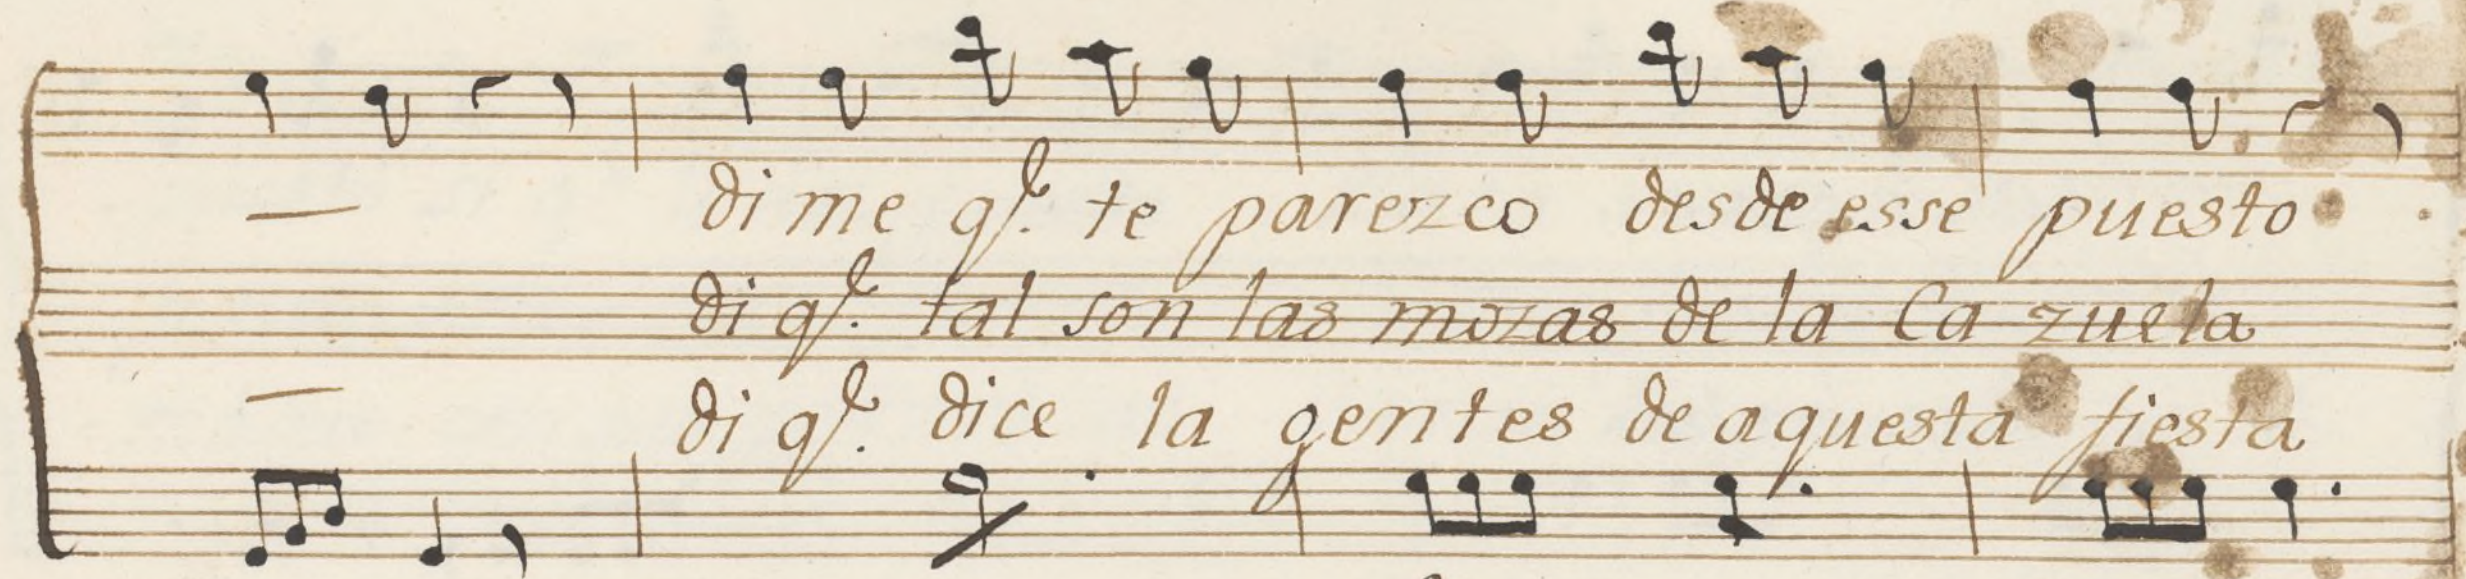 di me qe. te parezco desde esse puesto
di qe. tal son las mozas de la Ca zuela
di qe. dice la gentes de aquesta fiesta